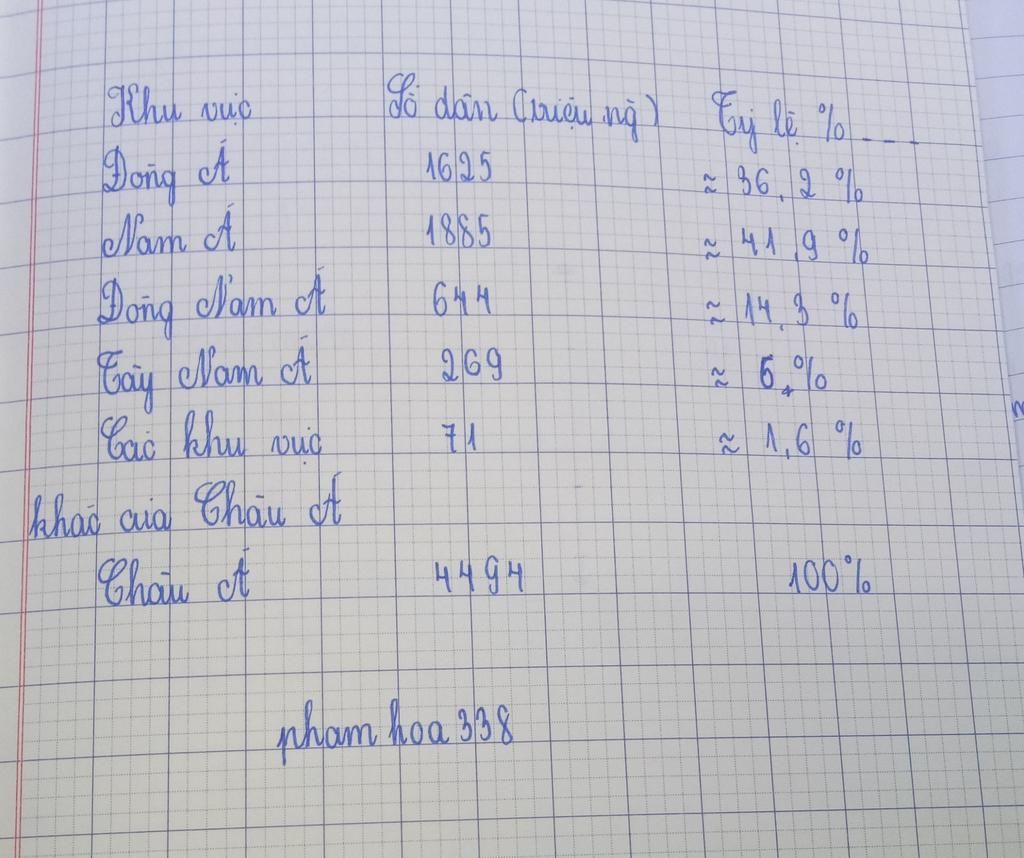 Khu vực Số dân (triệu ng) Tỷ lệ %
Đông Á 1625 ≈ 36,2 %
Nam Á 1885 ≈ 41,9 %
Đông Nam Á 644 ≈ 14,3 %
Tây Nam Á 269 ≈ 6,%
Các khu vực 71 ≈ 1,6 %
khác của Châu Á
Châu Á 4494 100%
pham hoa 338